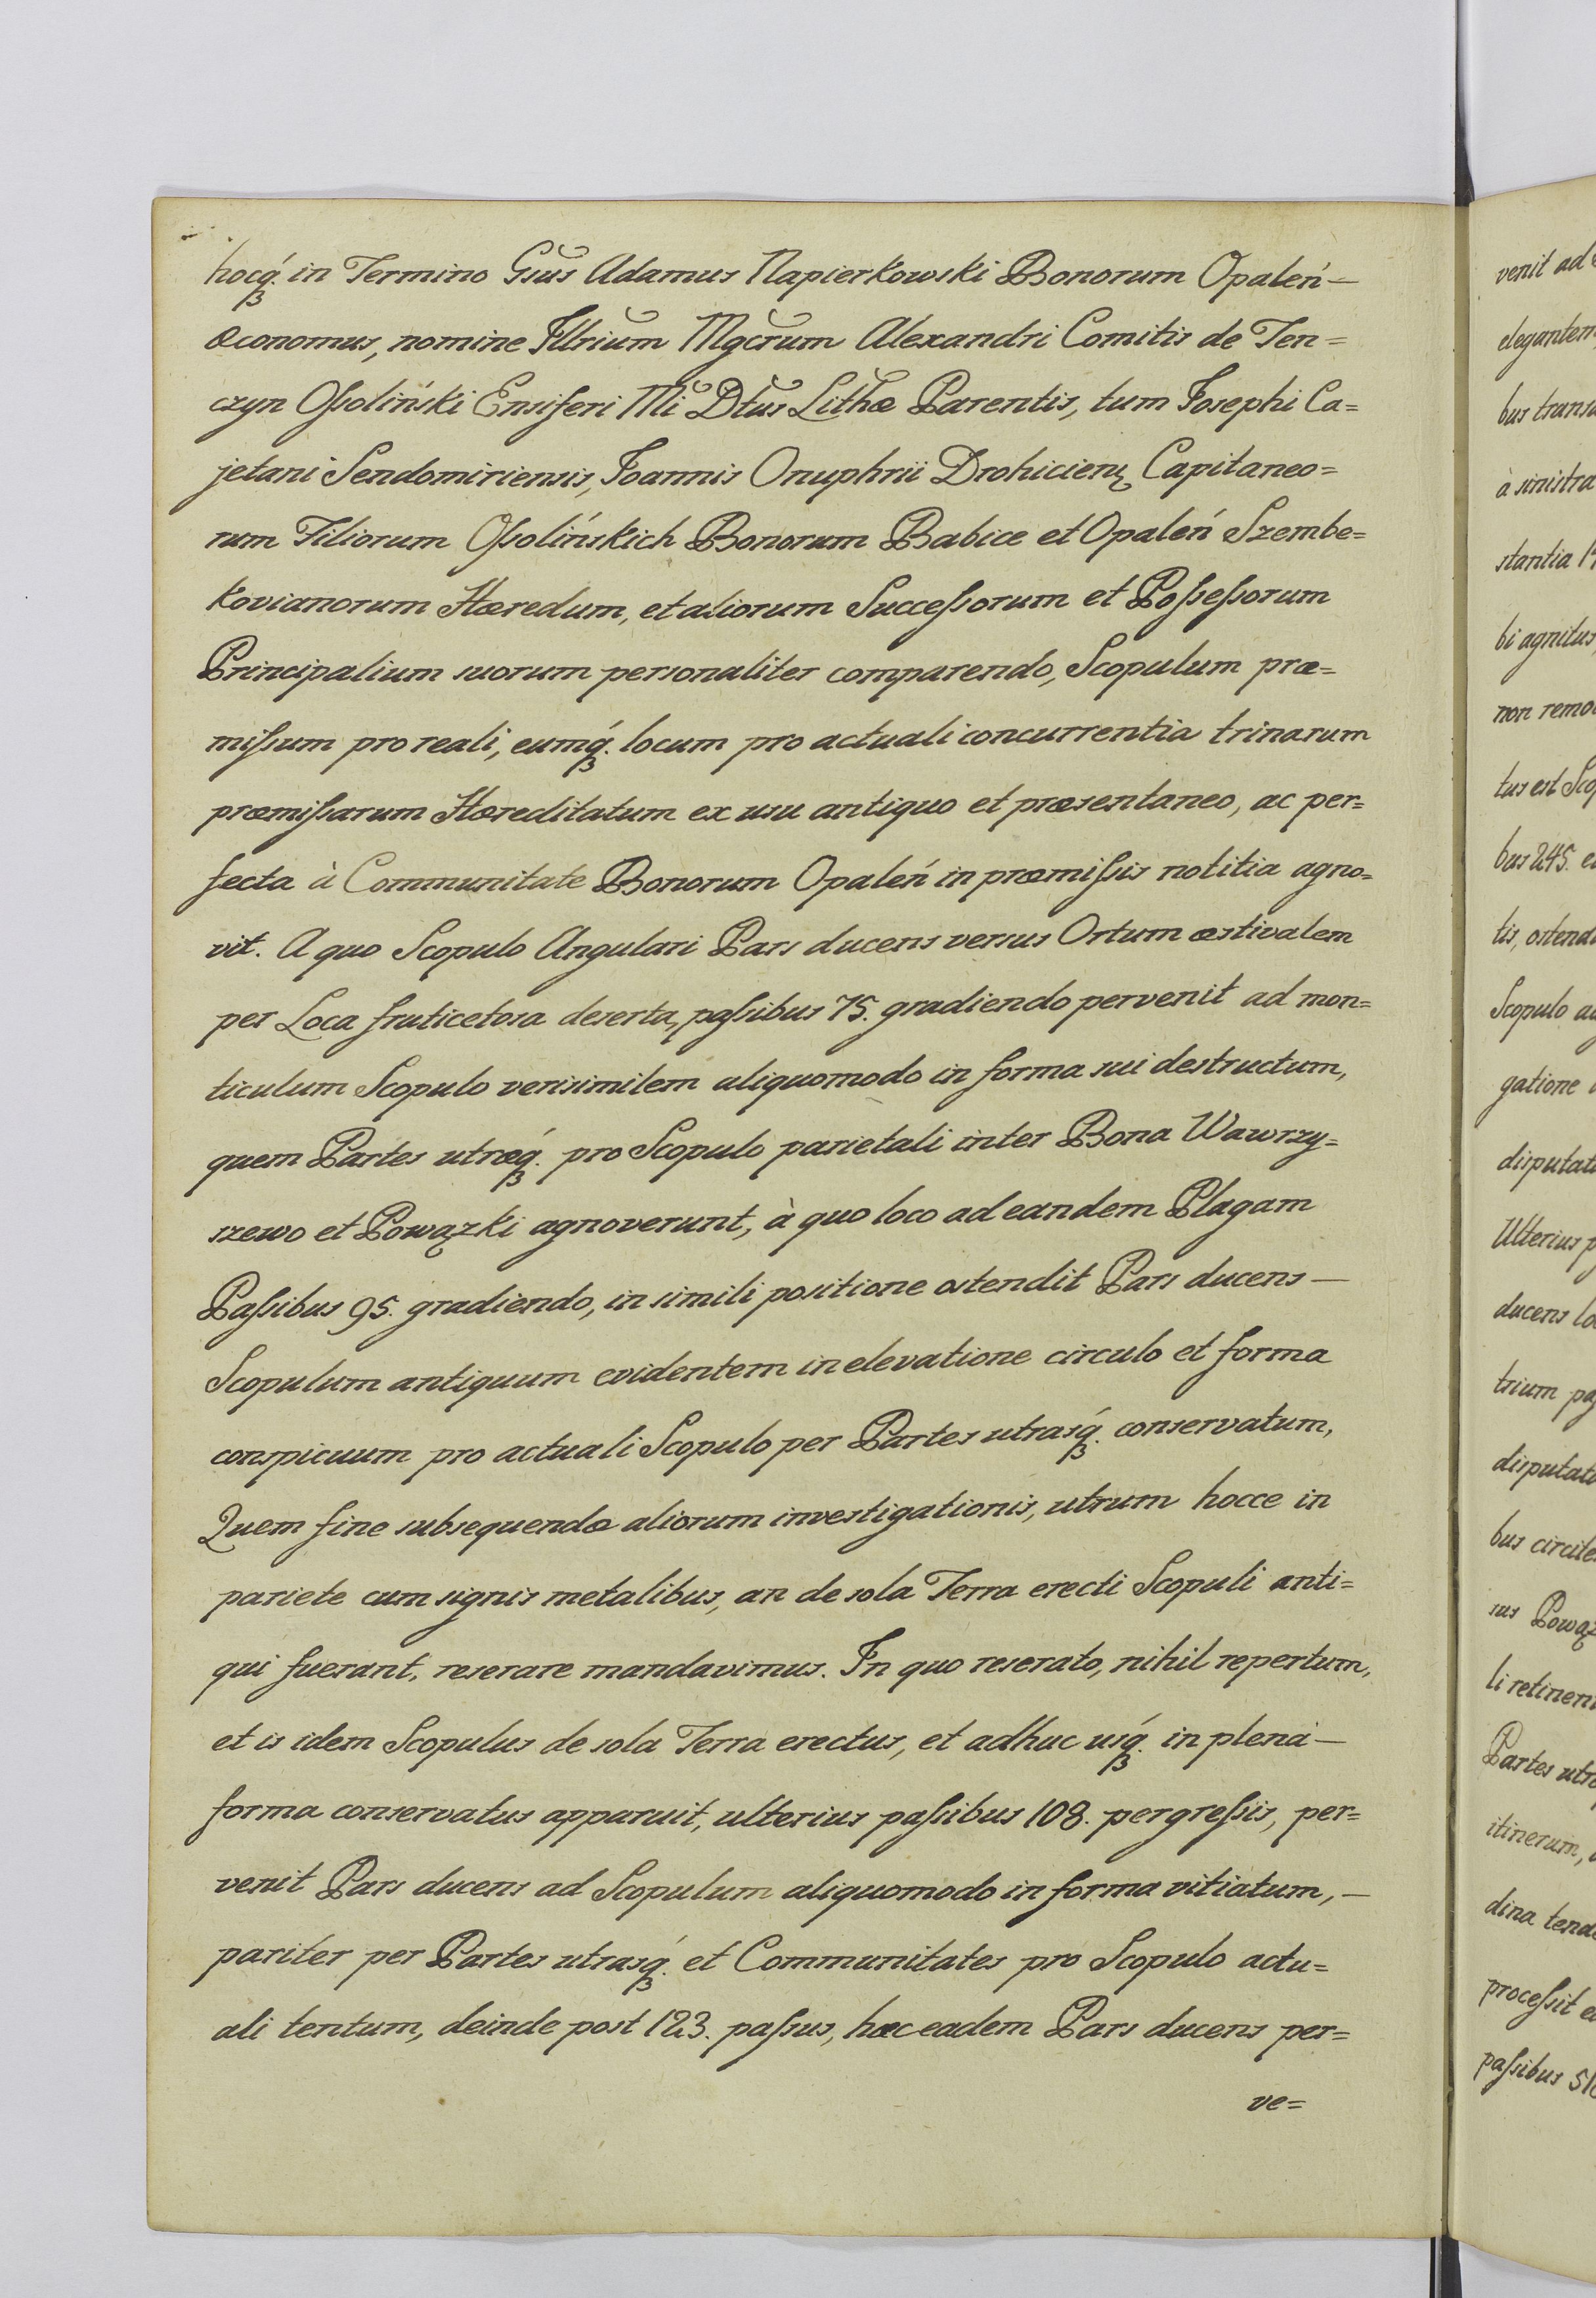 hocq́ꝫ in Termino Gsus Adamus Napierkowski Bonorum Opaleń—
œconomus, nomine Illrium Mgcrum Alexandri Comitis de Ten=
czyn Oſsoliński Ensiferi Mi Dtus Lithæ Parentis, tum Josephi Ca=
jetani Sendomiriensis, Joannis Onuphrii Drohicienꝫ Capitaneo=
rum Filiorum Oſsolińskich Bonorum Babice et Opaleń Szembe=
kovianorum Hæredum, et aliorum Succeſsorum et Poſseſsorum
Principalium suorum personaliter comparendo, Scopulum præ=
miſsum pro reali, eumq́ꝫ locum pro actuali concurrentia trinarum
præmiſsarum Hæreditatum ex usu antiquo et præsentaneo, ac per=
fecta à Communitate Bonorum Opaleń in præmiſsis notitia agno=
vit. A quo Scopulo Angulari Pars ducens versus Ortum æstivalem
per Loca fruticetosa deserta, paſsibus 75. gradiendo pervenit ad mon=
ticulum Scopulo verisimilem aliquomodo in forma sui destructum,
quem Partes utræq́ꝫ pro Scopulo parietali inter Bona Wawrzy=
szewo et Powązki agnoverunt, à quo loco ad eandem Plagam
Paſsibus 95. gradiendo, in simili positione ostendit Pars ducens—
Scopulum antiquum evidentem in elevatione circulo et forma
conspicuum pro actuali Scopulo per Partes utrasq́ꝫ conservatum,
Quem fine subsequendæ aliorum investigationis, utrum hocce in
pariete cum signis metalibus, an de sola Terra erecti Scopuli anti=
qui fuerant, reserare mandavimus. In quo reserato, nihil repertum,
et is idem Scopulus de sola Terra erectus, et adhuc usq́ꝫ in plená—
forma conservatus apparuit, ulterius paſsibus 108. pergreſsis, per=
venit Pars ducens ad Scopulum aliquomodo in forma vitiatum,—
pariter per Partes utrasq́ꝫ et Communitates pro Scopulo actu=
ali tentum, deinde post 123. paſsus, hæc eadem Pars ducens per=
ve=
venit ad
elegantem
bus trans
à sinistra
stantia
bi agnitus
non remo
tus est Sco
bus 245. e
tis, ostend
Scopulo a
gatione
disputat
Ulterius p
ducens lo
trium pa
disputat
bus circite
sus Powąz
li retinen
Partes utr
itinerum,
dina tend
proceſsit e
paſsibus 51